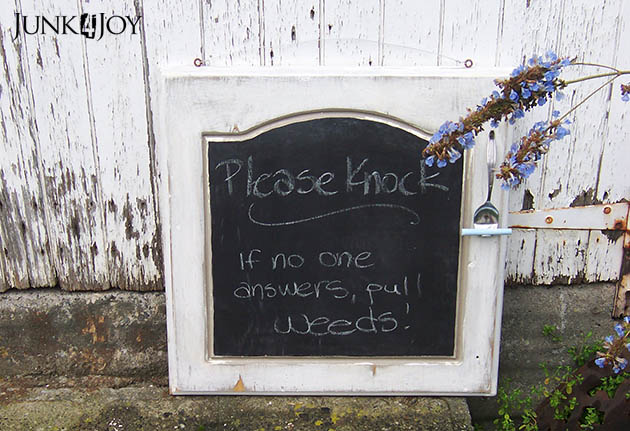 JUNK4JOY
Please Knock
If no one
answers, pull
weeds!